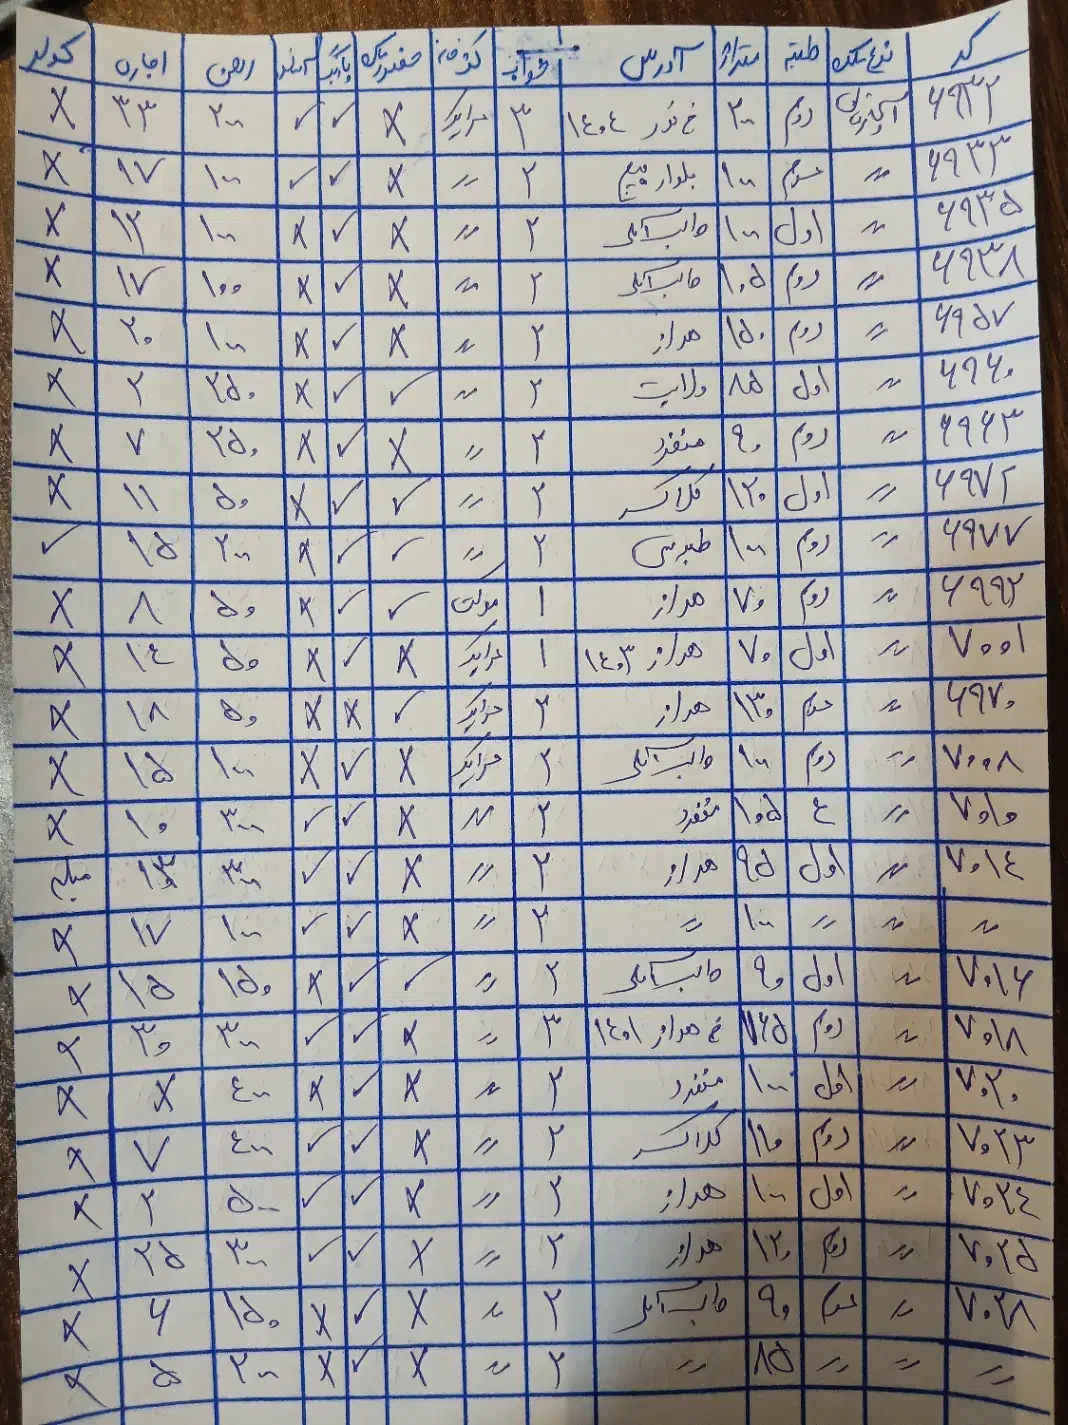 کد نوع ملک طبقه متراژ آدرس خواب کفخانه صفرو تک پارک آسانسور رهن اجاره کولر
۶۹۳۲ آپارتمان دوم ۲۰۰ خ نور ۱۴۰۴ ۳ سرامیک × ✓ ✓ ۲۰۰ ۳۳ ×
۶۹۳۳ 〃 سوم ۱۰۰ بلوار بسیج ۲ 〃 × ✓ ✓ ۱۰۰ ۱۷ ×
۶۹۳۵ 〃 اول ۱۰۰ طالب آملی ۲ 〃 × ✓ × ۱۰۰ ۱۲ ×
۶۹۳۸ 〃 دوم ۱۰۵ طالب آملی ۲ 〃 × ✓ × ۱۰۰ ۱۷ ×
۶۹۵۷ 〃 دوم ۱۵۰ هراز ۲ 〃 × ✓ × ۱۰۰ ۲۰ ×
۶۹۶۰ 〃 اول ۸۵ ولایت ۲ 〃 ✓ ✓ × ۲۵۰ ۲ ×
۶۹۶۳ 〃 دوم ۹۰ منفرد ۲ 〃 × ✓ × ۲۵۰ ۷ ×
۶۹۷۲ 〃 اول ۱۲۰ گلاکسر ۲ 〃 ✓ ✓ × ۵۰ ۱۱ ×
۶۹۷۷ 〃 دوم ۱۰۰ طبرسی ۲ 〃 ✓ ✓ × ۲۰۰ ۱۵ ✓
۶۹۹۲ 〃 دوم ۷۰ هراز ۱ موکت ✓ ✓ × ۵۰ ۸ ×
۷۰۰۱ 〃 اول ۷۰ هراز ۱۴۰۳ ۱ سرامیک × ✓ × ۵۰ ۱۴ ×
۶۹۷۰ 〃 سوم ۱۳۰ هراز ۲ سرامیک ✓ × × ۵۰ ۱۸ ×
۷۰۰۸ 〃 دوم ۱۰۰ طالب آملی ۲ سرامیک × ✓ × ۱۰۰ ۱۵ ×
۷۰۱۰ 〃 ۴ ۱۰۵ منفرد ۲ 〃 × ✓ ✓ ۳۰۰ ۱۰ ×
۷۰۱۴ 〃 اول ۹۵ هراز ۲ 〃 × ✓ ✓ ۳۰۰ ۱۳ مبله
〃 〃 〃 ۱۰۰ 〃 ۲ 〃 × ✓ ✓ ۱۰۰ ۱۷ ×
۷۰۱۶ 〃 اول ۹۰ طالب آملی ۲ 〃 ✓ ✓ × ۱۵۰ ۱۵ ×
۷۰۱۸ 〃 دوم ۱۶۵ خ هراز ۱۴۰۱ ۳ 〃 × ✓ ✓ ۳۰۰ ۳۰ ×
۷۰۲۰ 〃 اول ۱۰۰ منفرد ۲ 〃 × ✓ × ۴۰۰ × ×
۷۰۲۳ 〃 دوم ۱۱۰ گلاکسر ۲ 〃 × ✓ ✓ ۴۰۰ ۷ ×
۷۰۲۴ 〃 اول ۱۰۰ هراز ۲ 〃 × ✓ ✓ ۵۰۰ ۲ ×
۷۰۲۵ 〃 دوم ۱۲۰ هراز ۲ 〃 × ✓ ✓ ۳۰۰ ۲۵ ×
۷۰۲۸ 〃 سوم ۹۰ طالب آملی ۲ 〃 × ✓ × ۱۵۰ ۶ ×
〃 〃 〃 ۸۵ 〃 ۲ 〃 × ✓ × ۲۰۰ ۵ ×